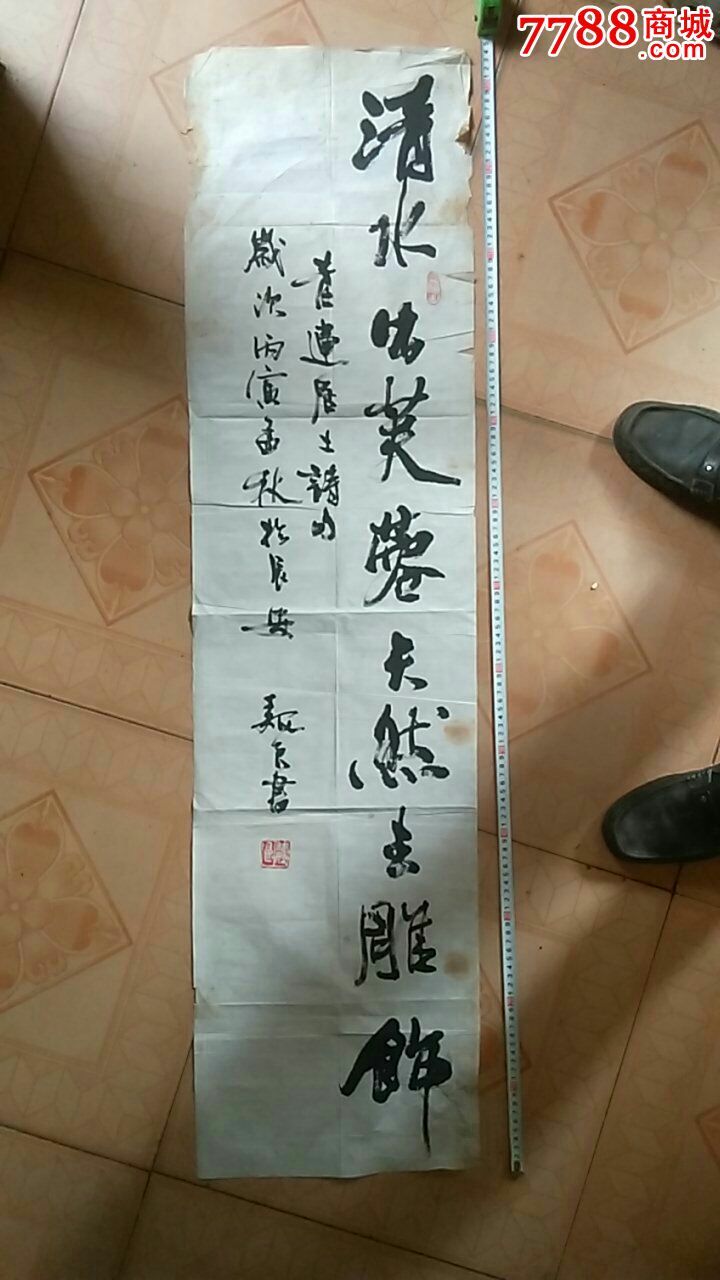 7788商城
.com
清水出芙蓉天然去雕飾
青蓮居士詩句
歲次丙寅孟秋於長安
書